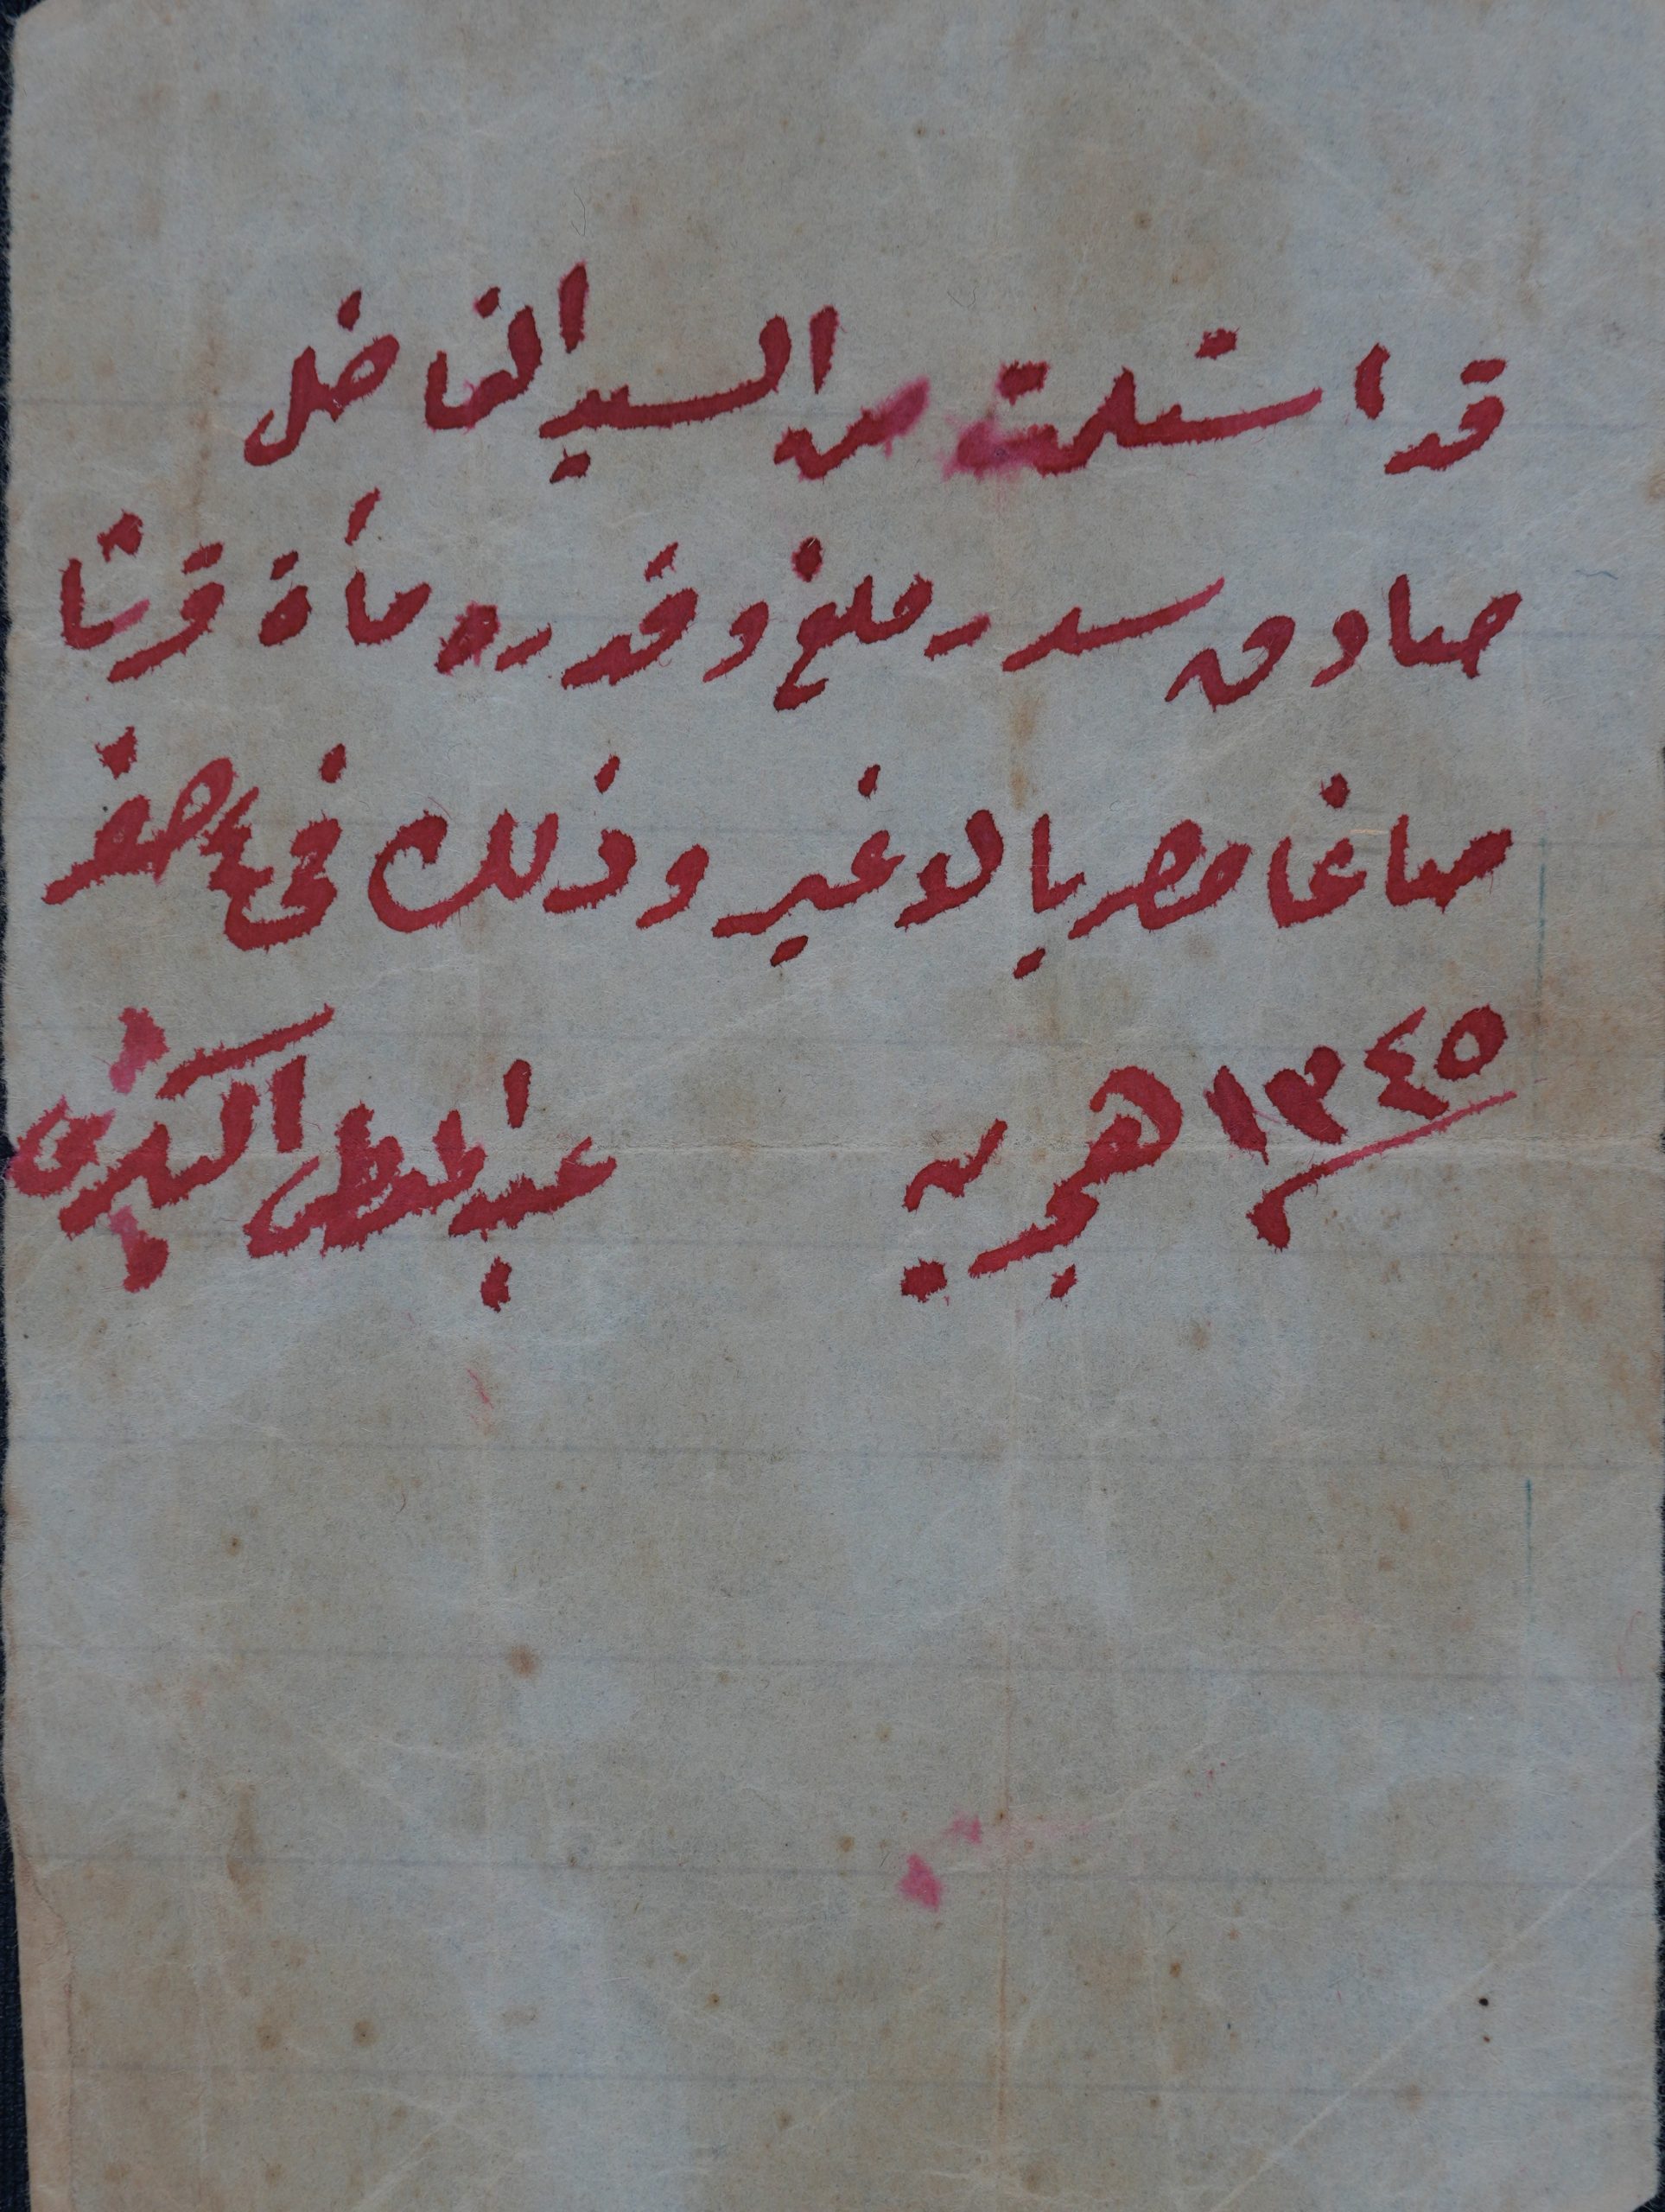 قد استلمت من السيد الفاضل
صادق سدر مبلغ وقدره مأة قرشا
صاغا مصريا لا غير وذلك في ٤ صفر
١٣٤٥ هجريه عبد المعطي